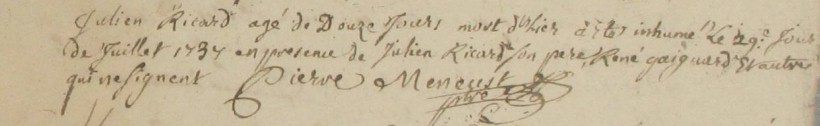 Julien Ricard agé de Douze Jours mort d'hier a été inhumé Le 29e Jour
de Juillet 1737 en presence de Julien Ricard son pere, René gaignard Et autres
qui ne signent Pierre Meneust
ptre